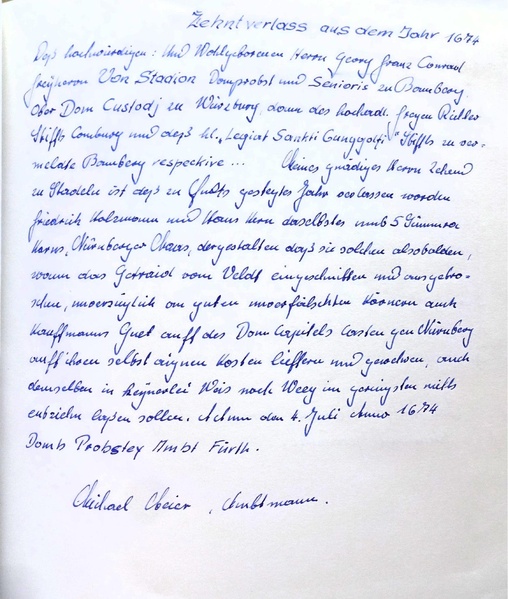 Zehntverlass aus dem Jahr 1674
Deß hochwürdigen: Und Wohlgeborenen Herrn Georg Franz Conrad
Freyherrn Von Stadion Domprobst und Senioris zu Bamberg,
Ober Dom Custodj zu Würzburg, dann des hochadl. freyen Ritter
Stiffts Comburg und deß kl. „Legiat Sankti Gunggolfi" Stiffts zu ver-
melate Bamberg respective ... Meines gnädiges Herrn Zehend
zu Stadeln ist deß zu gesteytes Jahr verlassen worden
Friedrich Holzmann und Hans Kern daselbstes umb 5 Simmra
Korns, Nürnberger Maas, dergestalten daß sie solchen alsobalden,
wann das Getraid vom Veldt eingeschnitten und ausgedro-
schen, unverzüglich an guten unverfälschten Körnern auch
Kauffmanns Guet auff des Dom Capitels Casten gen Nürnberg
auff ihren selbst aignen Kosten lieffern und gewehren, auch
demselben in keynerlei Weis noch Weeg im geringsten nichts
entziehn laßen sollen. Actum den 4. Juli Anno 1674
Domb Probstey Ambt Fürth.
Michael Meier, Ambtmann.